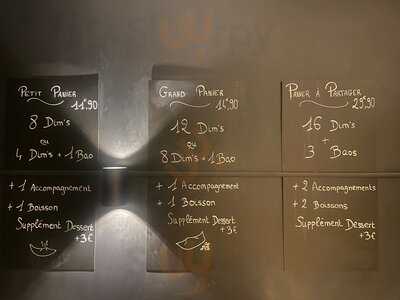 Petit Panier
11€90
8 Dim's
ou
4 Dim's + 1 Bao
+ 1 Accompagnement
+ 1 Boisson
Supplément Dessert
+3€
Grand Panier
14€90
12 Dim's
ou
8 Dim's + 1 Bao
+ 1 Accompagnement
+ 1 Boisson
Supplément Dessert
+3€
Panier à Partager
29€90
16 Dim's
+
3 Baos
+ 2 Accompagnements
+ 2 Boissons
Supplément Dessert
+3€